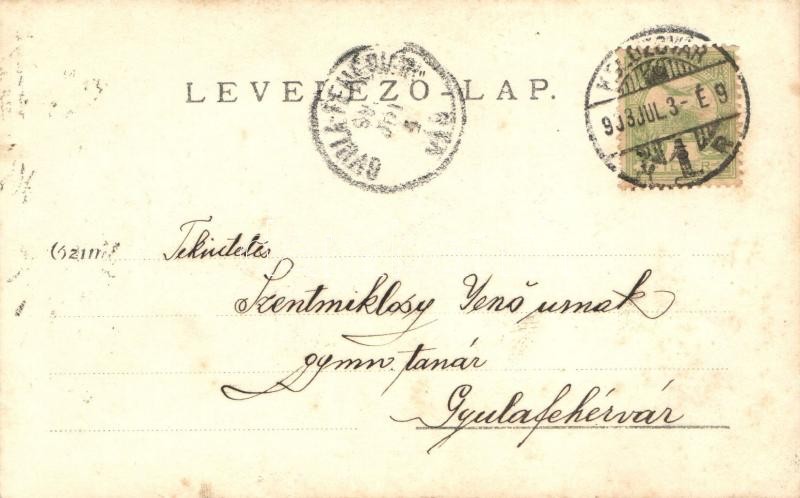 LEVELEZŐ-LAP.
GYULA-FEHÉRVÁR
KOLOZSVÁR
903 JUL. 3 - É 9
(Czim
Tekintetes
Szentmiklósy Jenő urnak
gymn. tanár
Gyulafehérvár